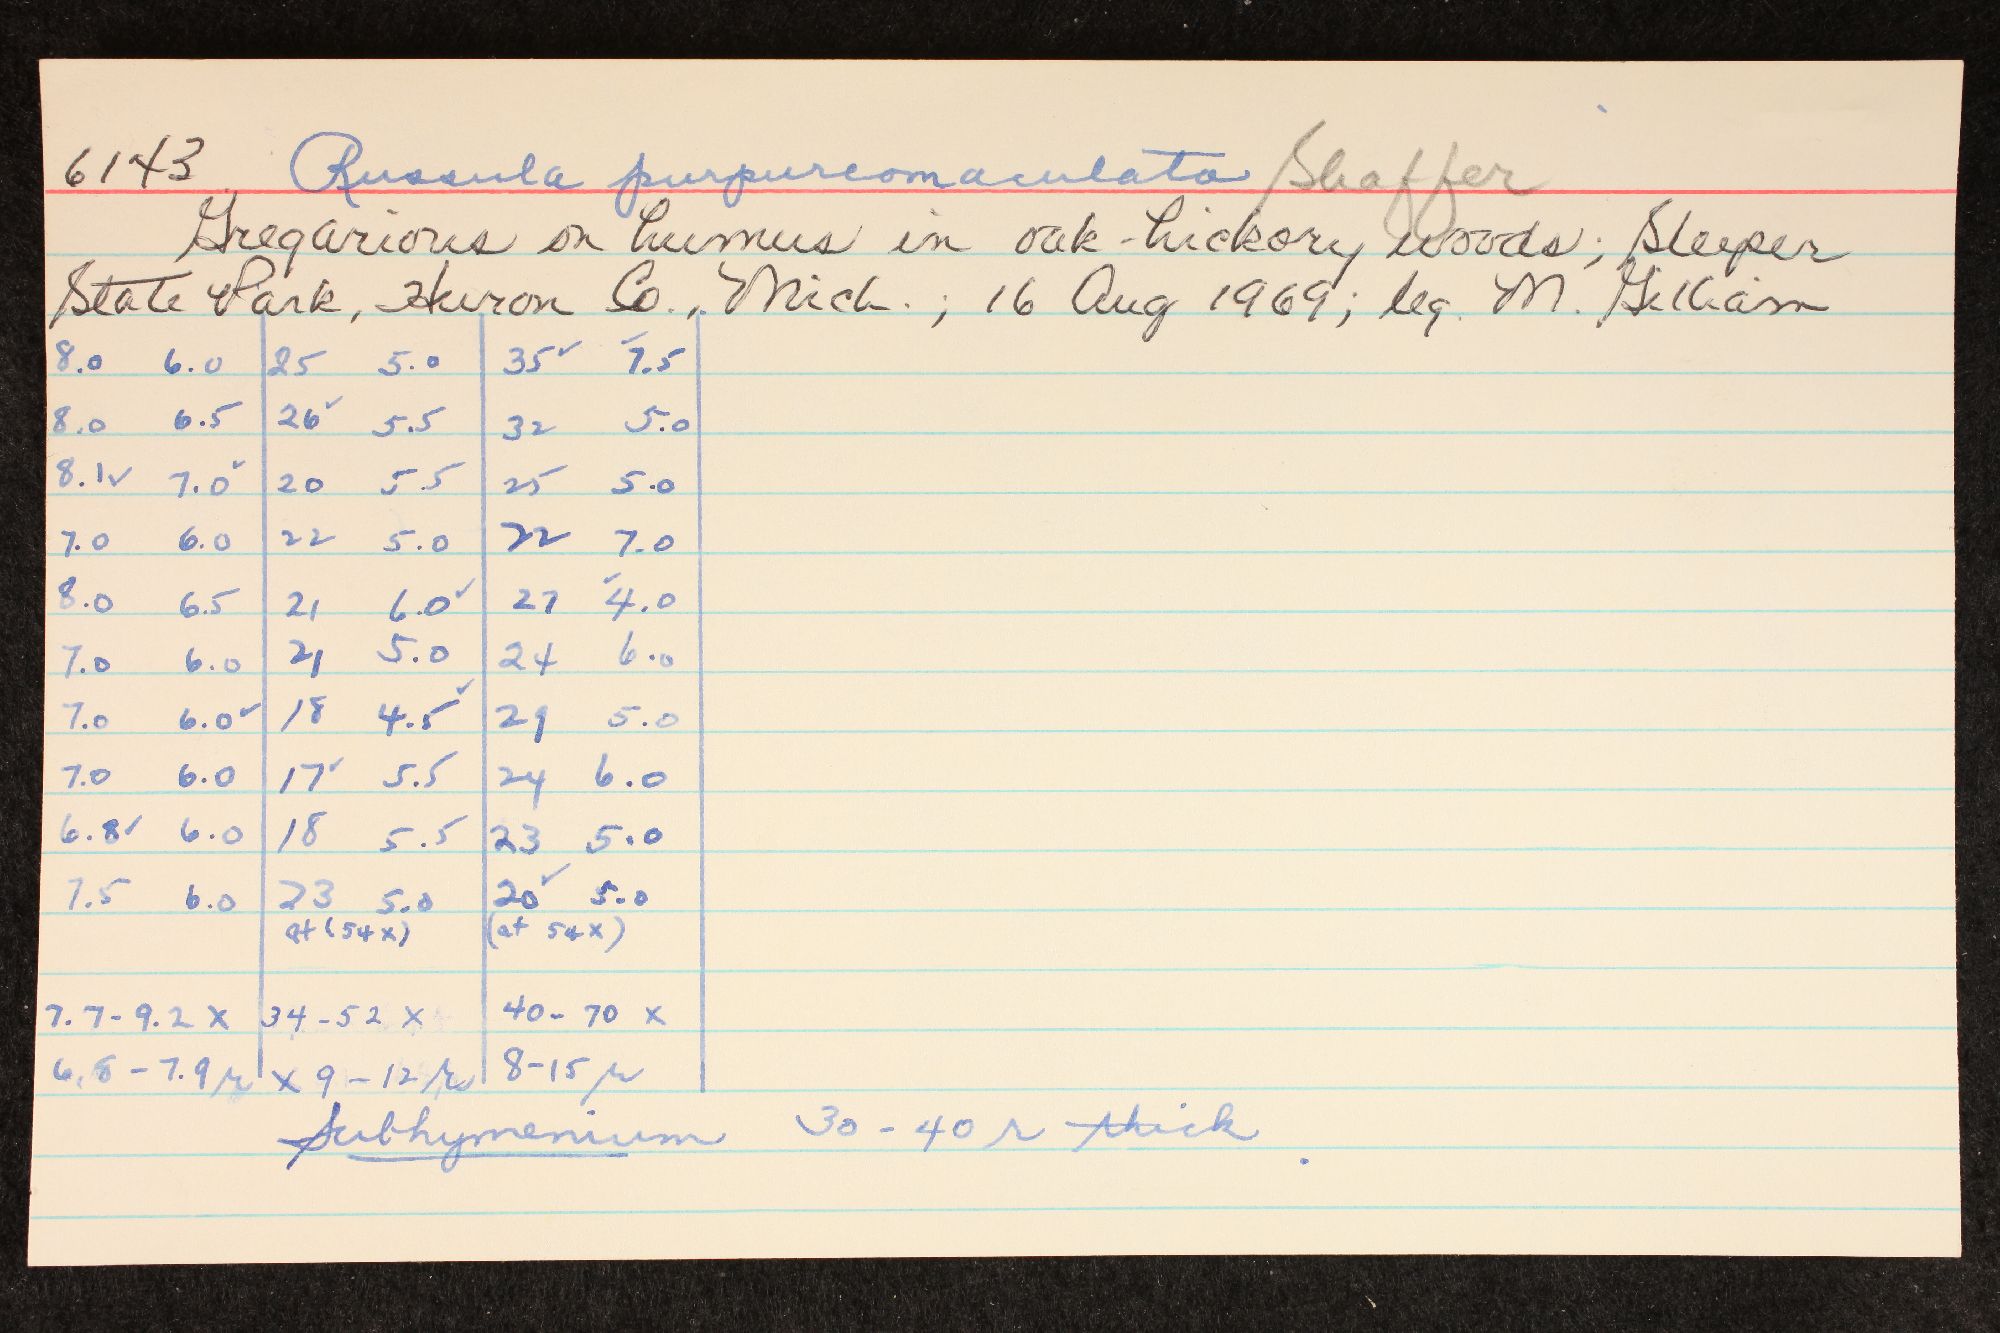 6143 Russula purpureomaculata Shaffer
Gregarious on humus in oak-hickory woods; Sleeper
State Park, Huron Co., Mich.; 16 Aug 1969; leg. M. Gilliam
8.0 6.0 25 5.0 35✓ ✓7.5
8.0 6.5 26✓ 5.5 32 5.0
8.1✓ 7.0✓ 20 5.5 25 5.0
7.0 6.0 22 5.0 22 7.0
8.0 6.5 21 6.0✓ 27 ✓4.0
7.0 6.0 21 5.0 24 6.0
7.0 6.0✓ 18 4.5✓ 29 5.0
7.0 6.0 17✓ 5.5 24 6.0
6.8✓ 6.0 18 5.5 23 5.0
7.5 6.0 23 5.0 20✓ 5.0
at (54x) (at 54x)
7.7-9.2 x 34-52 x 40-70 x
6.8-7.9 μ x 9-12 μ 8-15 μ
Subhymenium 30-40 μ thick.